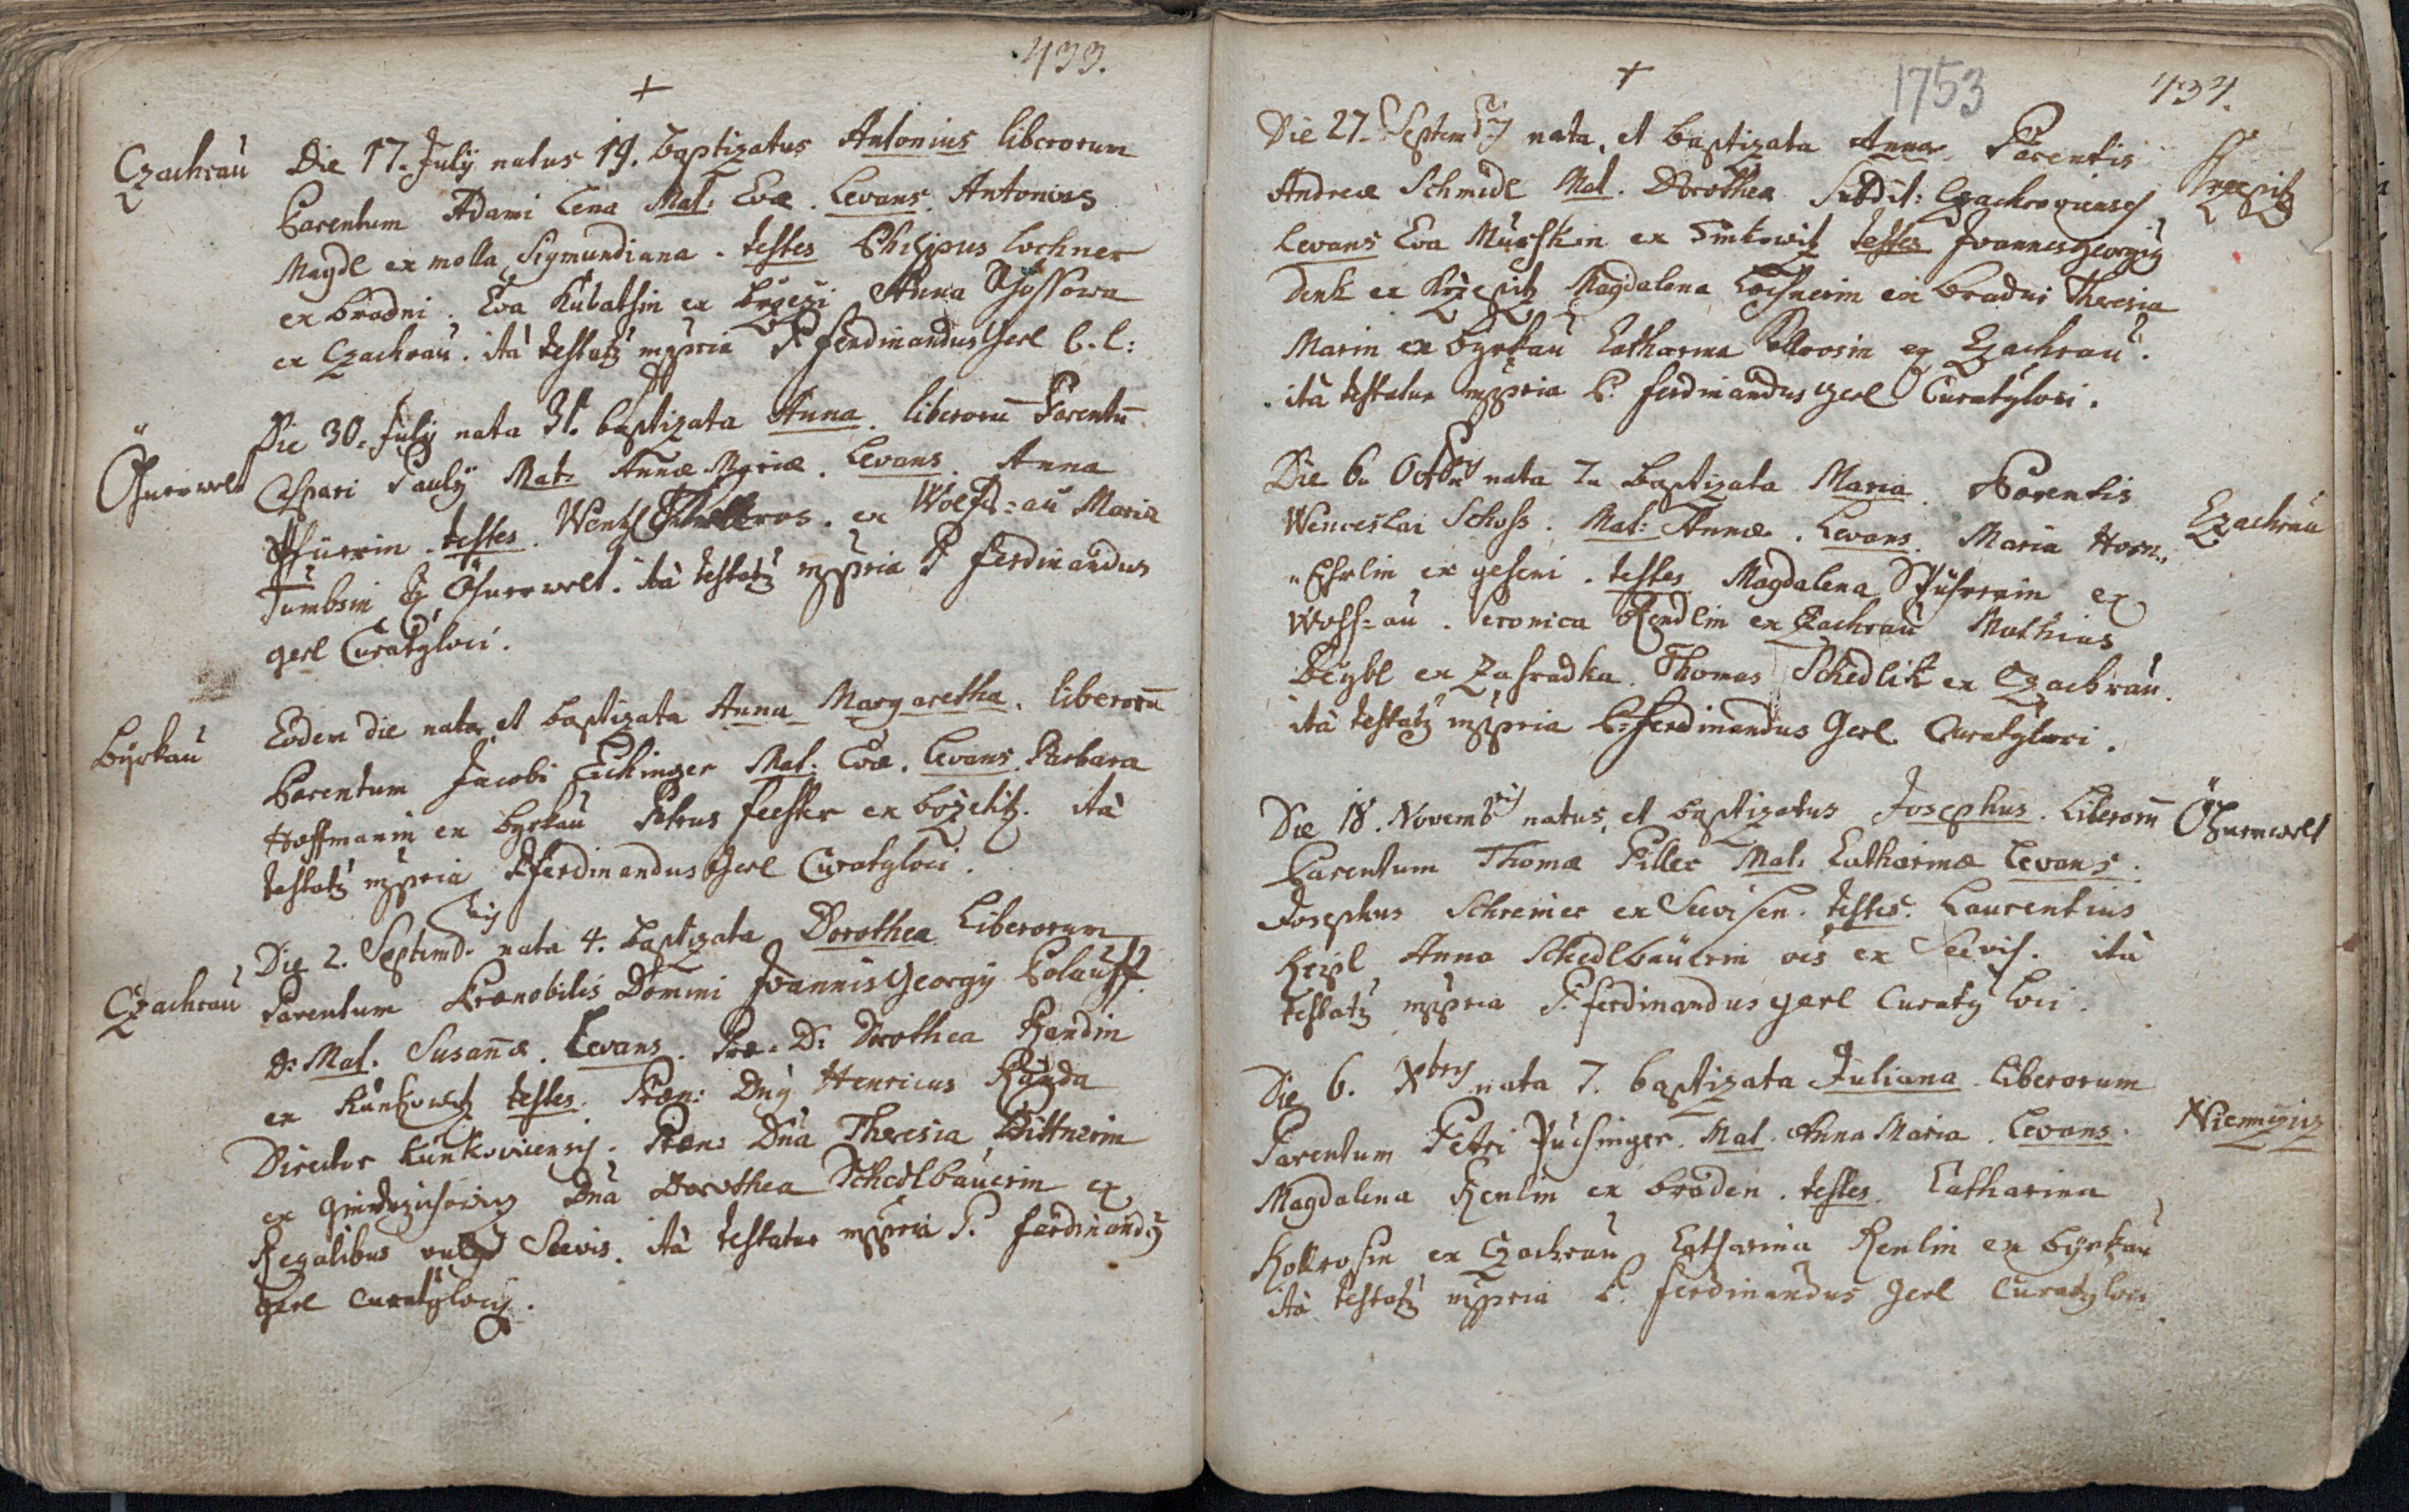 433.
+
Czachrau
Die 17. July natus 19. baptizatus Antonius liberorum
Parentum Adami Lena Mat: Evæ. Levans. Antonius
Magdl ex molla Sigmundiana. testes Philipus Lochner
ex bradni. Eva Kubatsin ex Anna
ex Czachrau. ità testatq mppria P Ferdinandus Gerl C. l:
Die 30. July nata 31. baptizata Anna. liberorū Parentū
Öhnerwelt
Caspari Pauly Mat: Annæ Mariæ. Levans. Anna
testes. Wentzl ex Wolfs=au Maria
Tumbsin ex Öhnerwelt. ità testatq mppria P Ferdinandus
gerl Curatg loci.
Eodem die nata et baptizata Anna Margaretha. liberorū
Byrkau
Parentum Jacobi Eckinger Mat: Evæ. Levans. Barbara
Hoffmanin ex byrkau Petrus feester ex bözelitz. ità
testatq mppria P Ferdinandus Gerl Curatg loci.
Die 2. Septembris nata 4. baptizata Dorothea Liberorum
Czachrau
Parentum Prænobilis Domini Joannis Georgÿ Polauff.
D: Mat. Susañæ. Levans. Præ. D: Dorothea Randin
ex Kunkowitz testes. Præn: Dng Henricus Randa
Director Kunkovicensis. Præn: Dna Theresia Bittnerin
ex Dna Dorothea Schedlbauerin ex
Regalibus vulgo Seevis. ità testatur mppria P. Ferdinandg
Gerl Curatg locy.
+
1753
434.
Die 27. Septembris nata, et baptizata Anna. Parentis
Andreæ Schmidl Mat. Dorothea Subdit: Czachroviensis
Levans Eva Murskin ex Tinkowitz testes Joannes georgig
Denk ex Krzepitz Magdalena Lochnerin ex bradni Theresia
Marin ex byrkau Catharina Kollrosin ex Czachrau.
ità testatur mppria P. Ferdinandus Gerl Curatg loci.
Die 6. Octobris nata 7. baptizata Maria. Parentis
Czachrau
Wenceslai Schoss. Mat: Annæ. Levans. Maria Horn„
„ ex geseni. testes Magdalena ex
Wolfs=au. Veronica Rendlin ex Czachrau Mathias
Deybl ex Zahradka. Thomas Schedlik ex Czachrau.
ità testatq mppria P. Ferdinandus Gerl Curatg loci.
Die 18. Novembris natus, et baptizatus Josephus. Liberorū
Öhnerwelt
Parentum Thomæ Piller Mat: Catharinæ Levans.
Josephus Schreiner ex Seevisen. testes. Laurentius
Kripl Anna Schedlbauerin ōes ex Seevis. ità
testatq mppria P. Ferdinandus gerl Curatg loci.
Die 6. Xbris nata 7. baptizata Juliana liberorum
Parentum Petri Puchinger. Mat. Anna Maria. Levans.
Magdalena Renlin ex braden. testes. Catharina
Kollrosin ex Czachrau Catharina Renlin ex byrkau
ità testatq mppria P. Ferdinandus Gerl Curatg loci.